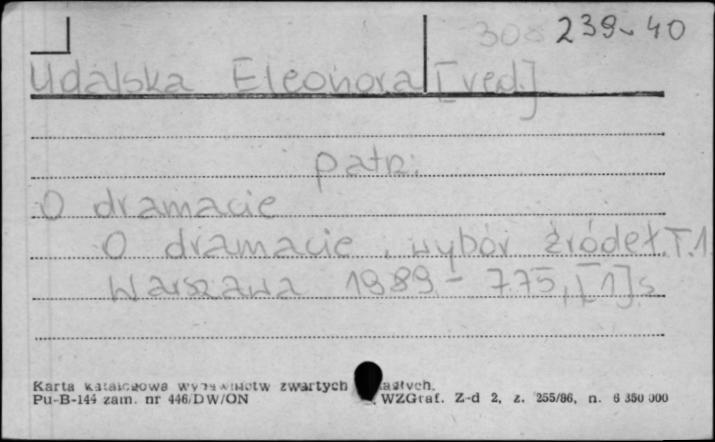 239-40
Udalska Eleonora [red.]
patrz:
O dramacie
O dramacie. wybór źródeł. T.1.
Warszawa 1989 - 775, [1] s
Karta katalogowa wydawnictw zwartych
Pu-B-144 zam. nr 446/DW/ON WZGraf. Z-d 2, z. 255/86, n. 6 350 000